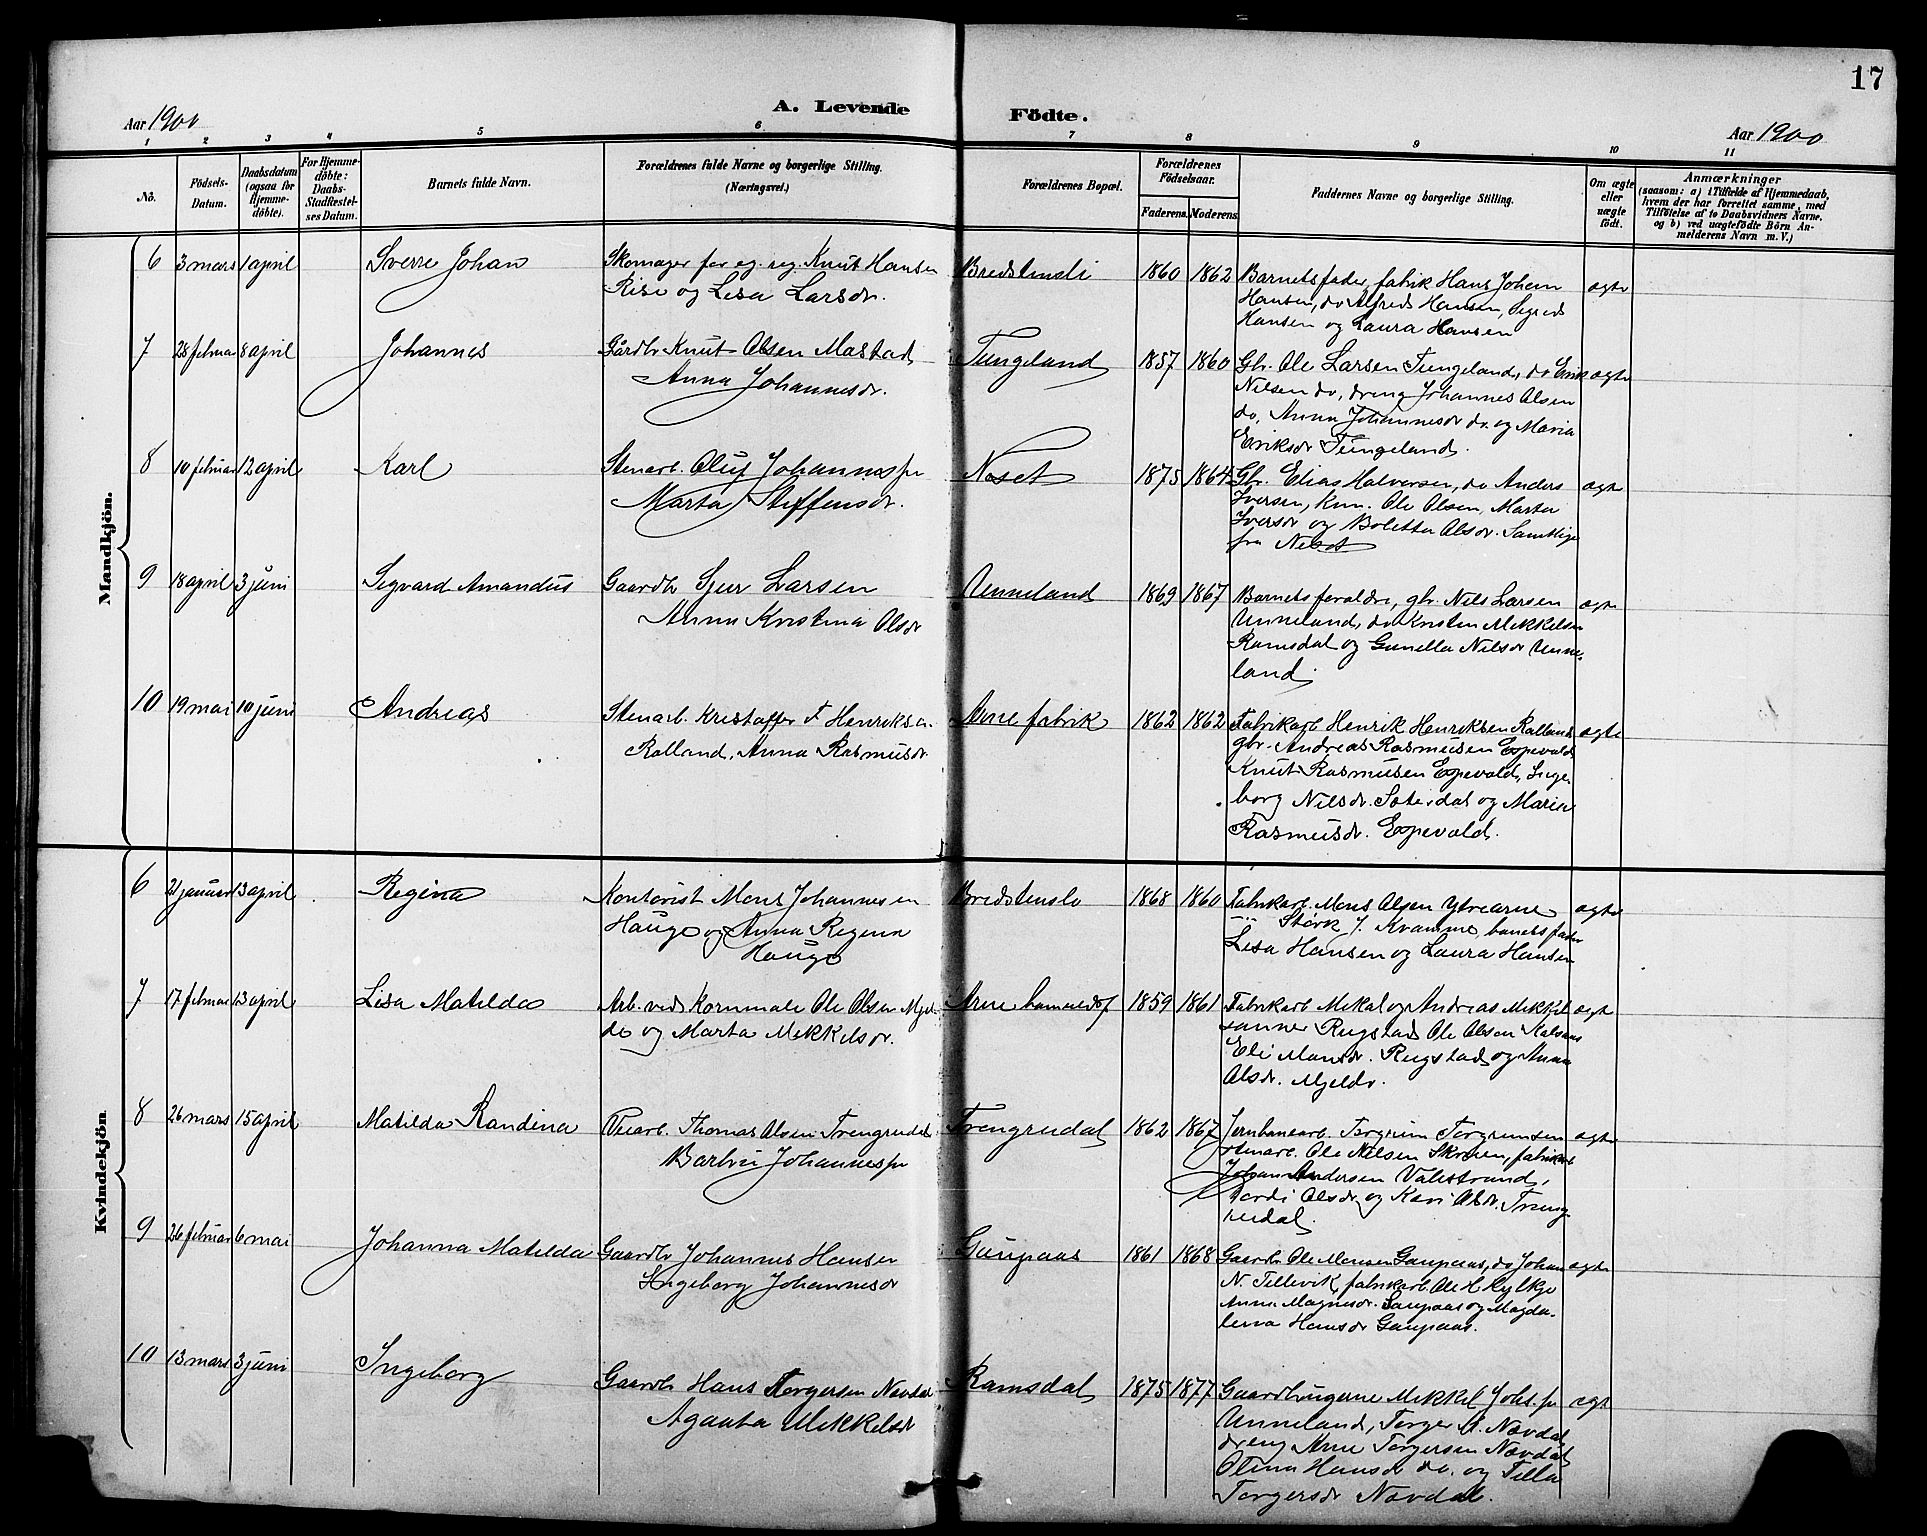 17
A. Levende Födte.
Aar 1900
Aar 1900
1 2 3 4 5 6 7 8 9 10 11
No.
Födsels-Datum.
Daabsdatum (ogsaa for Hjemme-döbte).
For Hjemme-döbte: Daabs-Stadfæstel-ses Datum.
Barnets fulde Navn.
Forældrenes fulde Navne og borgerlige Stilling.
(Næringsvei.)
Forældrenes Bopæl.
Forældrenes Födselsaar.
Faderens. Moderens.
Faddernes Navne og borgerlige Stilling.
Om ægte eller uægte födt.
Anmærkninger
(saasom: a) i Tilfælde af Hjemmedaab,
hvem der har forrettet samme, med
Tilföielse af to Daabsvidners Navne,
og b) ved uægtefödte Börn An-
melderens Navn m. V.)
Mandkjön.
6 3 mars 1 april Sverre Johan Skomager for eg. reg. Knut Hansen Bredstensli 1860 1862 Barnets fader, fabrik Hans Johan ægte
Rise og Lisa Larsdr. Hansen, do Alfred Hansen, Sigrid
Hansen og Laura Hansen
7 28 februar 8 april Johannes Gårdbr Knut Olsen Mastad Tungeland 1857 1860 Gbr. Ole Larsen Tungeland, do Erik ægte
Anna Johannesdr. Nilsen do, dreng Johannes Olsen
do, Anna Johannesdr do og Maria
Eriksdr Tungeland.
8 10 februar 12 april Karl Stenarb. Oluf Johannessen Neset 1875 1864 Gbr. Elias Halversen, do Anders ægte
Marta Steffensdr. Iversen, kun. Ole Olsen, Marta
Iversdr og Boletta Olsdr. Samtlige
fra Neset
9 18 april 3 juni Sigvard Amandus Gaardbr Sjur Larsen Unneland 1869 1867 Barnets foraldre, gbr. Nils Larsen ægte
Anna Kristina Olsdr Unneland, do Kristen Mikkelsen
Ramsdal og Gunella Nilsdr Unne-
land
10 19 mai 10 juni Andreas Stenarb. Kristoffer F Henriksen Arne fabrik 1862 1862 Fabrikarb Henrik Henriksen Rolland ægte
Rolland, Anna Rasmusdr gbr. Andreas Rasmusen Espevold
Knut Rasmusen Espevold, Inge-
borg Nilsdr. Sæterdal og Maria
Rasmusdr. Espevold.
Kvindekjön
6 21 januar 13 april Regina Kontorist Mons Johannesen Bredstensli 1868 1860 Fabrikarb. Mons Olsen Ytrearne ægte
Hauge og Anna Regina Størk J. Kvamme, barnets fader
Hauge Lisa Hansen og Laura Hansen
7 17 februar 13 april Lisa Matilda Arb. ved Kornmøle Ole Olsen Mjel- Arne 1859 1861 Fabrikarb Mikal og Andreas Mikkel ægte
de og Marta Mikkelsdr. sønner Rugstad Ole Olsen
Eli Monsdr. Rugstad og Anna
Olsdr. Mjelde.
8 26 mars 15 april Matilda Randina Veiarb. Thomas Olsen Trengrudal Trengrudal 1862 1867 Jernbanearb. Torgrim Torgrimsen ægte
Barbru Johannesdr stenarb. Ole Nilsen fabrikarb
Johan Andersen Valestrand,
Olsdr og Kari Olsdr. Treng-
rudal.
9 26 februar 6 mai Johanna Matilda Gaardbr Johannes Hansen Gaupaas 1861 1868 Gaardbr Ole Monsen Gaupaas, do Johan ægte
Ingeborg Johannesdr N. Tellevik, fabrikarb Ole H Kylkje
Anna Magnusdr. Gaupaas og Magda-
lena Hansdr Gaupaas.
10 13 mars 3 juni Ingeborg Gaardbr Hans Torgersen Navdal Ramsdal 1875 1877 Gaardbrugerne Mikkel Johs.sen ægte
Agaata Mikkelsdr Unneland, Torger A. Navdal
dreng Arne Torgersen Navdal
Olina Hansdr do. og Tilla
Torgersdr Navdal.